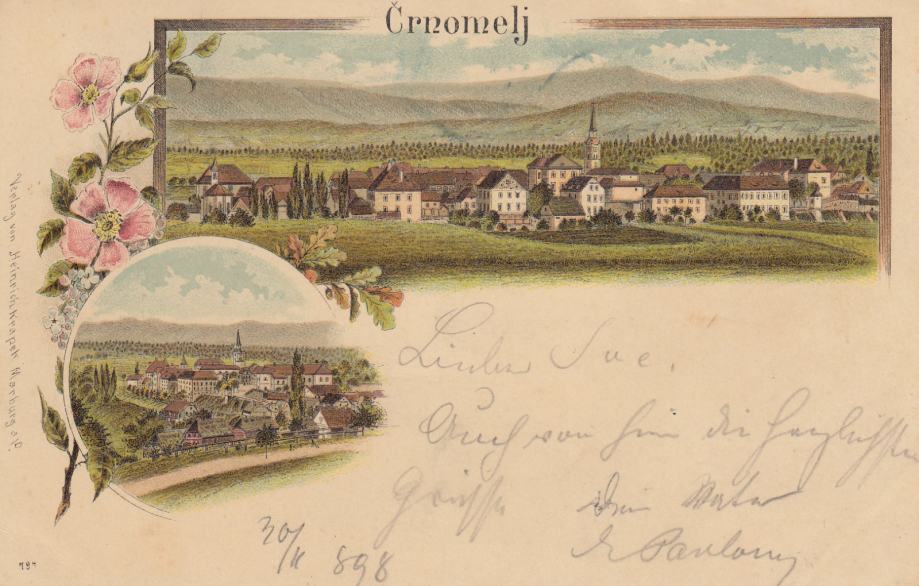 Črnomelj
Verlag von Heinrich Krapek Marburg a/D.
Lieber
Auch von hier die herzlichsten
Grüsse Dein Vater
30/ 898
797